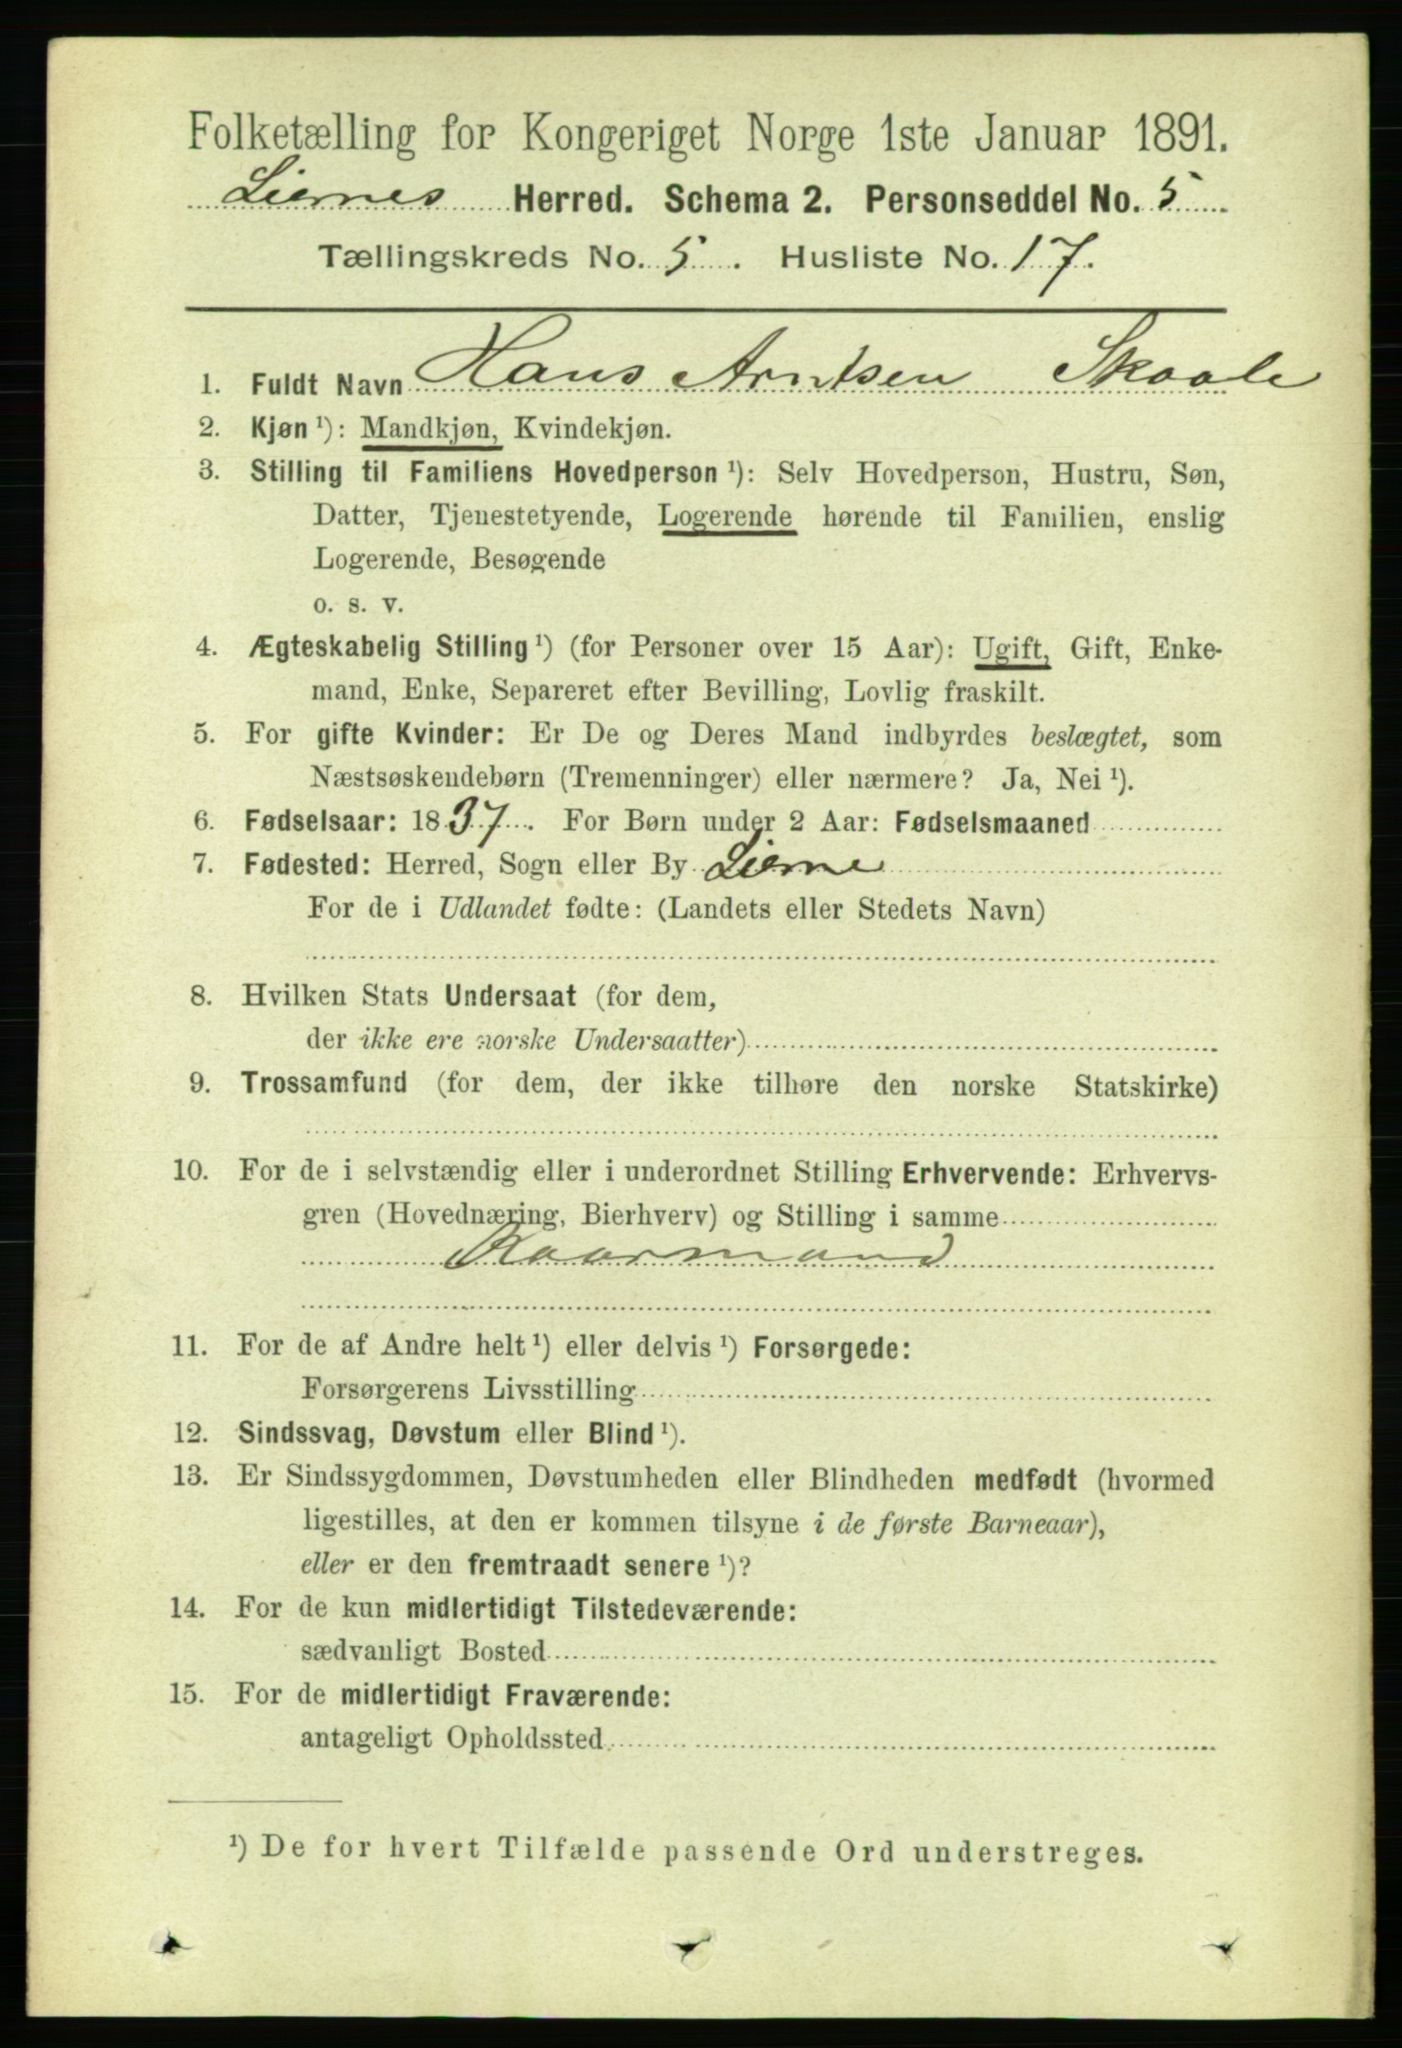 Folketælling for Kongeriget Norge 1ste Januar 1891.
Liernes Herred. Schema 2. Personseddel No. 5
Tællingskreds No. 5. Husliste No. 17.
1. Fuldt Navn Hans Arntsen Skaale
2. Kjøn ¹): Mandkjøn, Kvindekjøn.
3. Stilling til Familiens Hovedperson ¹): Selv Hovedperson, Hustru, Søn,
Datter, Tjenestetyende, Logerende hørende til Familien, enslig
Logerende, Besøgende
o. s. v.
4. Ægteskabelig Stilling ¹) (for Personer over 15 Aar): Ugift, Gift, Enke-
mand, Enke, Separeret efter Bevilling, Lovlig fraskilt.
5. For gifte Kvinder: Er De og Deres Mand indbyrdes beslægtet, som
Næstsøskendebørn (Tremenninger) eller nærmere? Ja, Nei ¹).
6. Fødselsaar: 1837. For Børn under 2 Aar: Fødselsmaaned
7. Fødested: Herred, Sogn eller By Lierne
For de i Udlandet fødte: (Landets eller Stedets Navn)
8. Hvilken Stats Undersaat (for dem,
der ikke ere norske Undersaatter)
9. Trossamfund (for dem, der ikke tilhøre den norske Statskirke)
10. For de i selvstændig eller i underordnet Stilling Erhvervende: Erhvervs-
gren (Hovednæring, Bierhverv) og Stilling i samme
Kaarmand
11. For de af Andre helt ¹) eller delvis ¹) Forsørgede:
Forsørgerens Livsstilling
12. Sindssvag, Døvstum eller Blind ¹).
13. Er Sindssygdommen, Døvstumheden eller Blindheden medfødt (hvormed
ligestilles, at den er kommen tilsyne i de første Barneaar),
eller er den fremtraadt senere ¹)?
14. For de kun midlertidigt Tilstedeværende:
sædvanligt Bosted
15. For de midlertidigt Fraværende:
antageligt Opholdssted
¹) De for hvert Tilfælde passende Ord understreges.